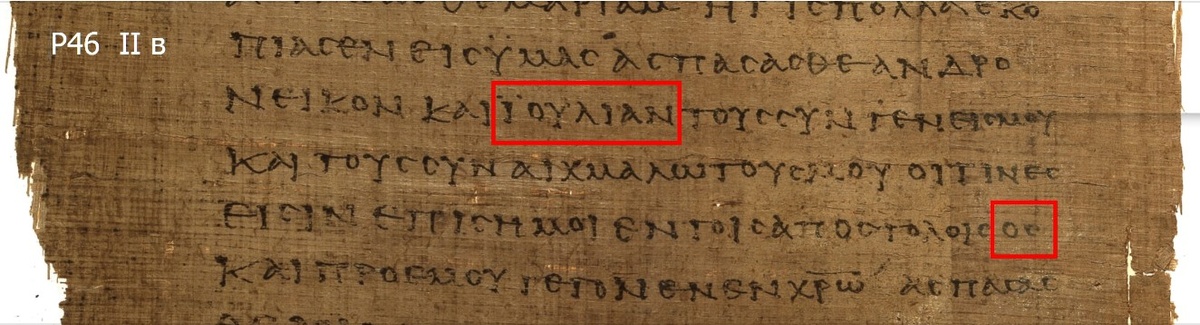 P46 II в
ΜΑΡΙΑΜ ΗΤΙΣ ΠΟΛΛΑ ΕΚΟ
ΠΙΑϹΕΝ ΕΙϹ ΫΜΑϹ ΑϹΠΑϹΑϹΘΕ ΑΝΔΡΟ
ΝΕΙΚΟΝ ΚΑΙ ΪΟΥΛΙΑΝ ΤΟΥϹ ϹΥΝΓΕΝΕΙϹ ΜΟΥ
ΚΑΙ ΤΟΥϹ ϹΥΝΑΙΧΜΑΛΩΤΟΥϹ ΜΟΥ ΟΙΤΙΝΕϹ
ΕΙϹΙΝ ΕΠΙϹΗΜΟΙ ΕΝ ΤΟΙϹ ΑΠΟϹΤΟΛΟΙϹ ΟϹ
ΚΑΙ ΠΡΟ ΕΜΟΥ ΓΕΓΟΝΕΝ ΕΝ ΧΡΩ ΑϹΠΑϹΑϹ